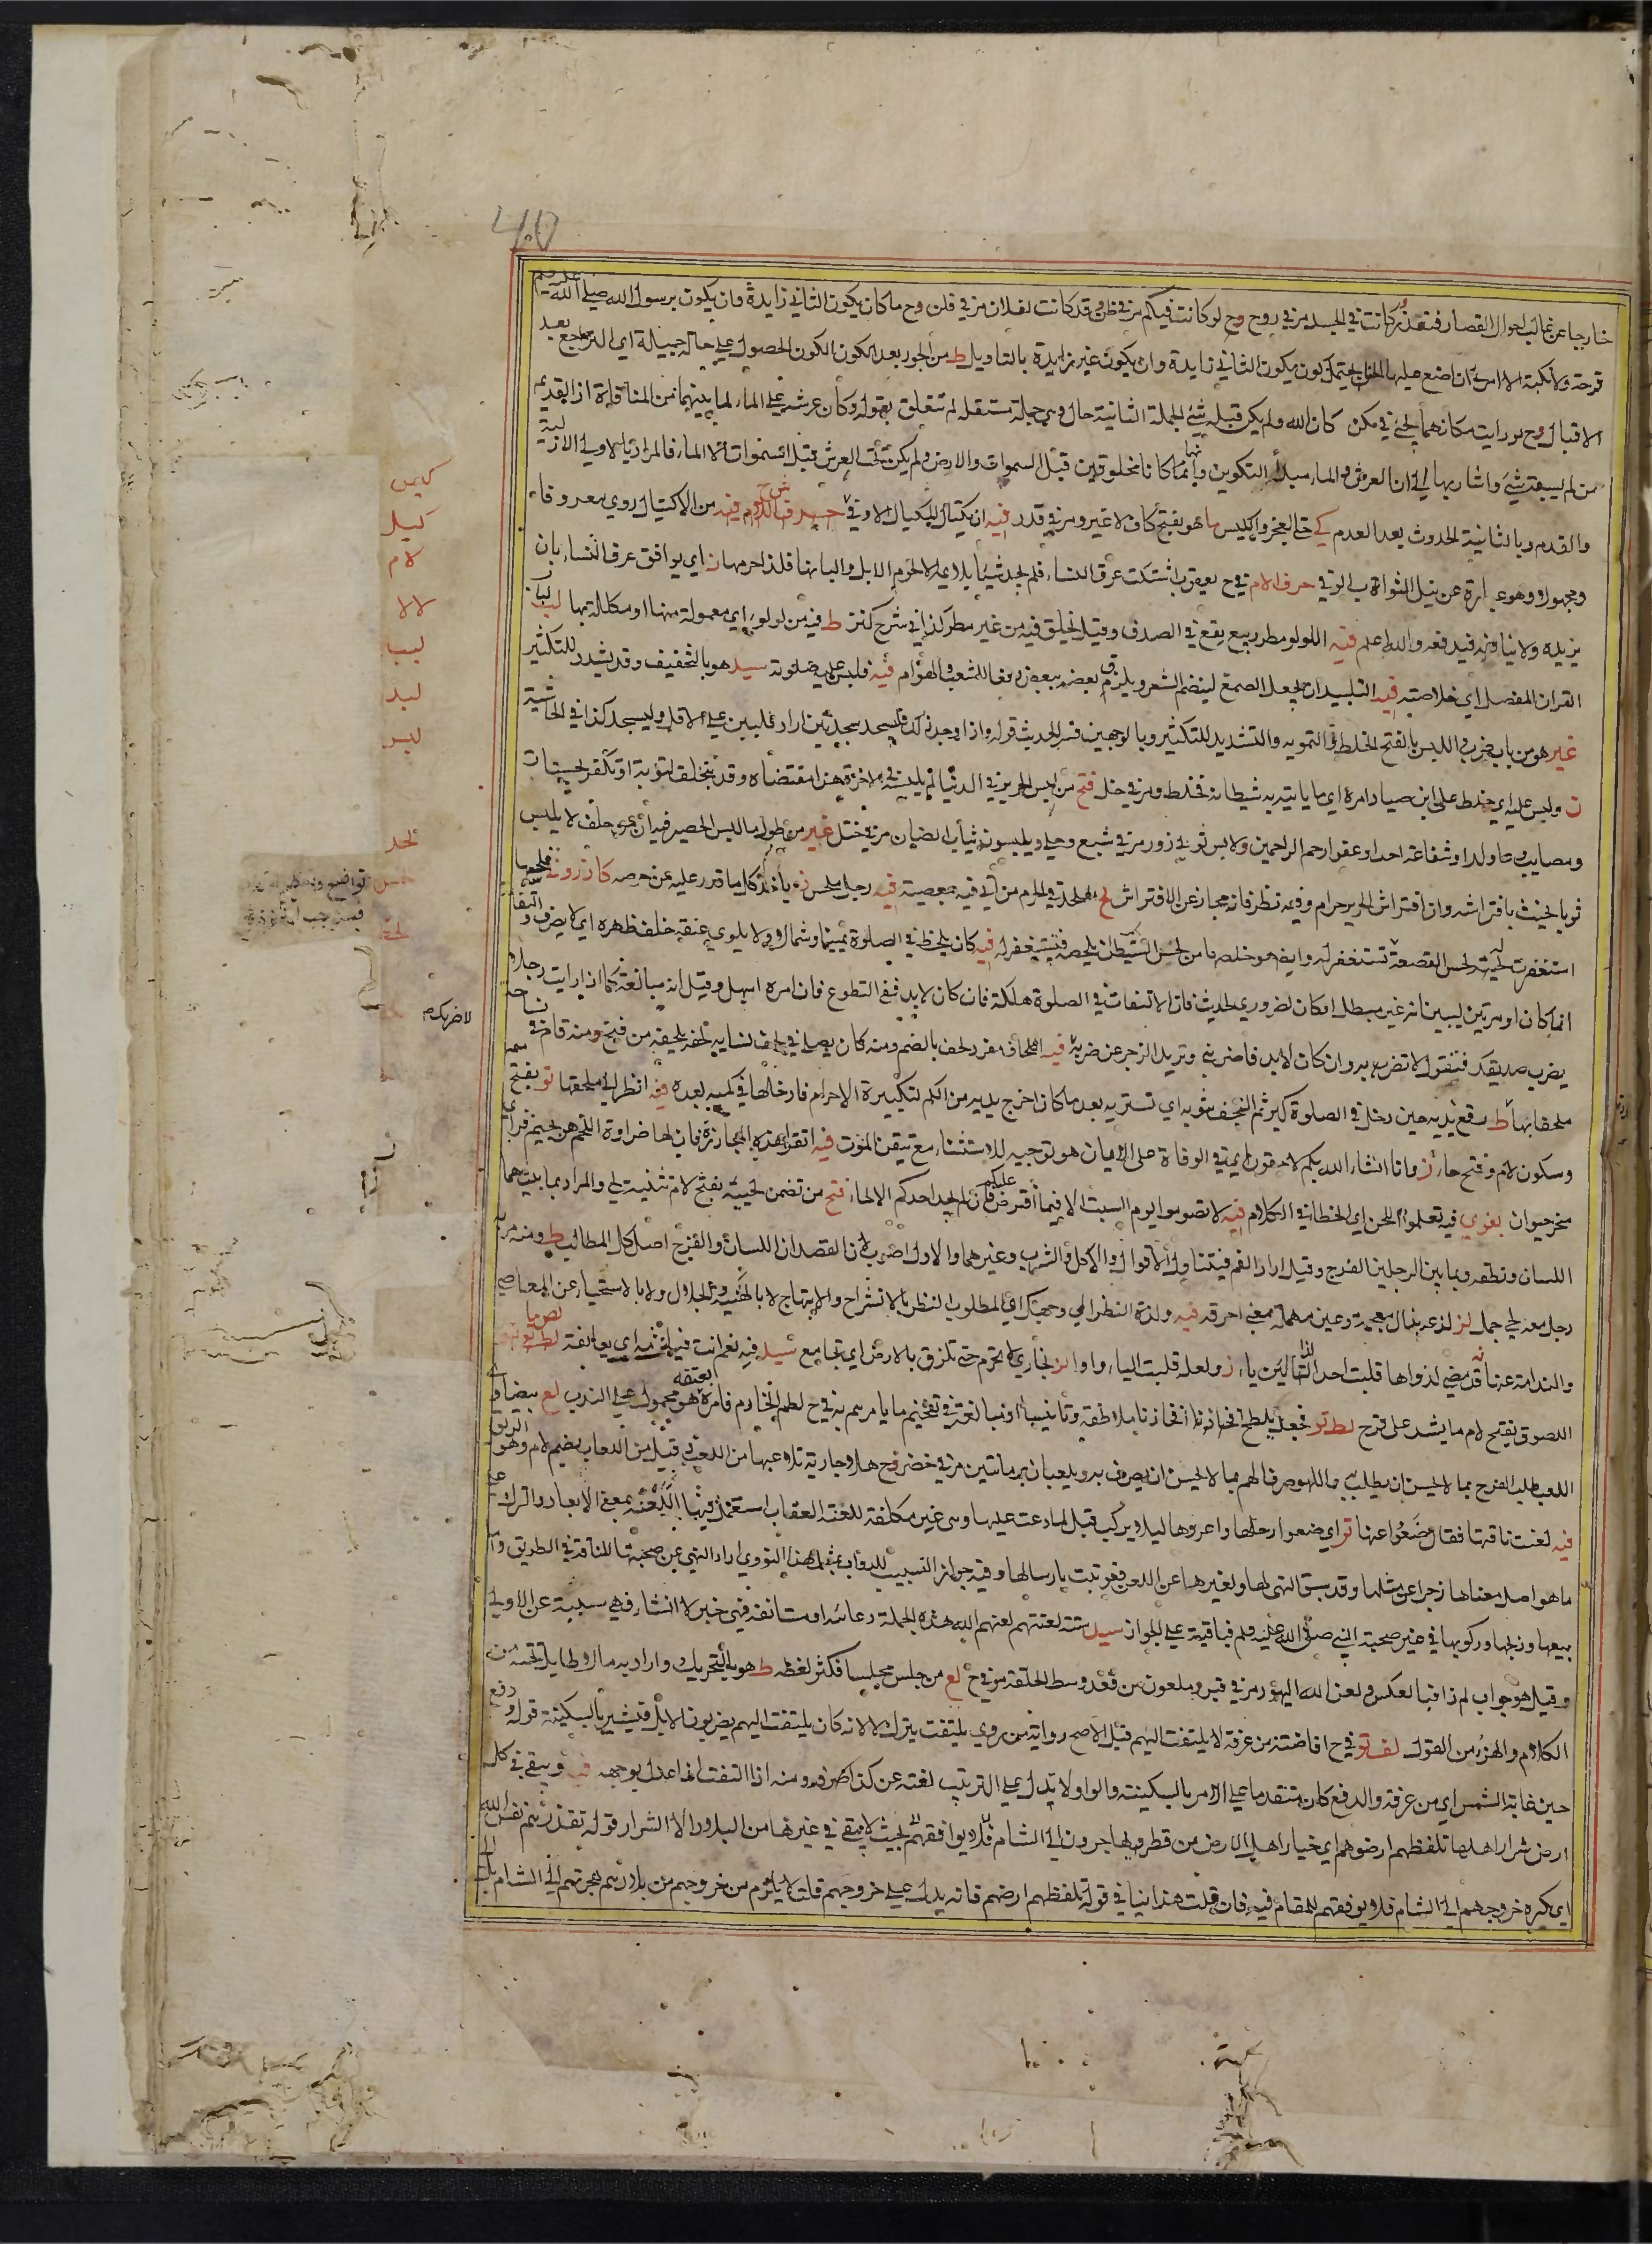 خارجا عن غالب احوال القصار فتعذر كانت في الجسد مر في روح وح لو كانت فيكم مر في ظن وقد كانت لفلان مر في قلن وح ما كان يكون الثاني زايدة وان يكون برسول الله صلى الله عليه وسلم
قرحة ولا نكبة الا امرني ان اضع عليها الحناء يحتمل كون يكون الثاني زايدة وان يكون غير زايدة بالتاويل ط من الحور بعد الكون الكون الحصول على حالة جميلة اي التراجع بعد
الاقبال وح لو رايت مكانهما يجئ في مكن كان الله ولم يكن قبله شئ الجملة الثانية حال وهي جملة مستقلة لم تتعلق بقوله وكان عرشه على الماء لما بينهما من المنافاة اذ القديم
من لم يسبقه شئ واشار بها الى ان العرش والماء مبدأ التكوين وانهما كانا مخلوقين قبل السموات والارض ولم يكن تحت العرش قبل السموات الا الماء فالمراد بالاولى الازلية
والقدم وبالثانية الحدوث بعد العدم كي حتى العجز والكيس ما هو بفتح كاف لا غير ومر في قدر فيه ان يكتال بالمكيال الاوفى حرف اللام فيه من الاكتيال روي معروفا
ومجهولا وهو عبارة عن نيل الثواب الوفي حرف الام في ح يعقوب اشتكت عرق النساء فلم يجد شيئا يلايمه الا لحوم الابل والبانها فلذا حرمها ن اي يوافق عرق النساء بان
يزيده ولا ينافيه فيدفعه والله اعلم فيه اللولو مطر ربيع يقع في الصدف وقيل يخلق فيه من غير مطر كذا في شرح كنز ط فيه من لولو اي معمولة منها او مكللة بها لب لباب
القران المفصل اي خلاصته فيه التلبيد ان يجعل الصمغ لينضم الشعر ويلزق بعضه ببعض دفعا للشعث والهوام فيه فلبس عليه صلوته سيد هو بالتخفيف وقد يشدد للتكثير
غير هو من باب ضرب اللبس بالفتح الخلط في التمويه والتشديد للتكثير وبالوجهين فسر الحديث قوله واذا وجد ذلك فليسجد سجدتين اراد فليبن على الاقل وليسجد كذا في الحاشية
ن ولبس عليه اي خلط على ابن صياد امره اي ما ياتيه به شيطانه فخلط ومر في خل فتح من لبس الحرير في الدنيا لم يلبسه في الاخرة هذا مقتضاه وقد يتخلف لتوبة او تكفر لحسنات
ومصايب وعاولد او شفاعة احد او عفو ارحم الراحمين ولابس ثوبي زور مر في شبع وحلي ويلبسون ثياب الضيان مر في ختل غير من طول ما لبس الحصير فيه ان من حلف لا يلبس
ثوبا يحنث بافتراشه وان افتراش الحرير حرام وفيه نظر فانه مجاز عن الافتراش لح ملحد في الحرم من اتى فيه بمعصية فيه رجل ملحس ن يأخذ كل ما قدر عليه عن حرصه كازروني
استغفرت لحيث لحس القصعة تستغفر له وايضا هو خلصها من لحس الشيطان يلحسه فتستغفر له فيه كان يلحظ في الصلوة يمينا وشمالا ولا يلوي عنقه خلف ظهره اي لا يصرف والتفاته
انما كان او مرتين ليبين انه غير مبطل او كان لضروري لحديث فان الالتفات في الصلوة هلكة فان كان لابد ففي التطوع فان امره اسهل وقيل انه مبالغة كما اذا رايت رجلا
يضرب صديقك فتقول لا تضرب به وان كان لابد فاضربني وتريد الزجر عن ضربه فيه اللحاف مفرد لحف بالضم ومنه كان يصلي في لحف نسايه تلحفه بلحيفه من فتح ومنه قام في
ملحفا بها ط رفع يديه حين دخل في الصلوة كبر ثم التحف بثوبه اي تستر به بعد ما كان اخرج يديه من الكم لتكبيرة الاحرام فادخلها في كميه بعده فيه انظر الى ملحقها تو بفتح ميم
وسكون لام وفتح حاء ز وانا ان شاء الله بكم لاحقون اي في الوفاة على الايمان هو توجيه للاستثناء مع تيقن الموت فيه اتقوا هذه المجازر فان لها ضراوة اللحم هن
منخر حيوان بغوي فيه تعلموا اللحن اي الخطا في الكلام فيه لا تصوموا يوم السبت الا فيما افترض عليكم فان لم يجد احدكم الا لحاء فتح من تضمن لحييه بفتح لام تثنية لحي والمراد بما بينهما
اللسان ونطقه وبما بين الرجلين الفرج وقيل اراد الفم فيتناول الاقوال والاكل والشرب وغيرهما والاول اضرب لان القصد ان اللسان والفرج اصل كل المطالب ط ومنه مر
رجل معه لحي جمل لز لذعه بذال معجمة وعين مهملة بمعنى احرقه فيه ولذة النظر الى وجهك اي المطلوب النظر بالانشراح والابتهاج لا بالهيبة والجلال ولا بالاستحياء عن المعاصي
والندامة عنها قد مضى لذواها قلبت احد الذالين ياء ز ولعله قلبت الياء واوا لز بخاري لا تحرم حتى تلزق بالارض اي تجامع شيد فيه نعم انت فيلتزمه اي يعانقه
اللصوق بفتح لام ما يشد على قرح لط تو فجعل يلطح افخاذنا افخاذنا بملاطفة وتانيسا ومبالغة في تعظيم ما يامرهم به في ح لطم الخادم فامره بعتقه هو محمول على الندب لع بيضاوي
اللعب طلب الفرح بما لا يحسن ان يطلب به واللهو صرف الهم بما لا يحسن ان يصرف به ويلعبان برمانتين مر في خضر وح هلا جارية تلاعبها من اللعب وقيل من اللعاب بضم لام وهو الريق
فيه لعنت ناقتها فقال ضعوا عنها تو اي ضعوا رحلها واعروها ليلا يركب قيل لما دعت عليها وهي غير مكلفة للعنة العقاب استعمل فيها اللعنة بمعنى الابعاد والترك
ماهو اصل معناها زجرا عن مثلها وقد سبق النهي لها ولغيرها عن اللعن فعوقبت بارسالها وفيه جواز التسبيب للدواب بمثل هذا النووي اراد النهي عن صحبتها للناقة في الطريق واما
بيعها وذبحها وركوبها في غير صحبة النبي صلى الله عليه وسلم فباقية على الجواز سيد ستة لعنتهم لعنهم الله هذه الجملة دعائية او مستانفة فهي خبر لا انشاء فهي سببية عن الاولى
وقيل هو جواب لم ذا فبالعكس ولعن الله اليهود مر في قبر وملعون من قعد وسط الحلقة مر في ح لع من جلس مجلسا فكثر لغطه ط هو بالتحريك واراد به ما لا طايل تحته من
الكلام والهزء من القول لف تو في ح افاضته من عرفة لا يلتفت اليهم قيل الاصح رواية من روى يلتفت بترك لا لانه كان يلتفت اليهم يضربون الابل فيشير بالسكينة قوله دفع
حين غابت الشمس اي من عرفة والدفع كان متقدما على الامر بالسكينة والواو لا يدل على الترتيب لفته عن كذا صرفه ومنه اذا التفت انما عدل بوجهه فيه ويبقى في كل
ارض شرار اهلها تلفظهم ارضوهم اي خيار اهل الارض من قطرها يهاجرون الى الشام فلا يوافقهم بحيث لا يبقى في غيرها من البلاد الا الشرار قوله تقذرهم نفس الله
اي يكره خروجهم الى الشام فلا يوفقهم للمقام فيه فان قلت هذا ينافي قوله تلفظهم ارضهم فانه يدل على خروجهم قلت لا يلزم من خروجهم من بلادهم هجرتهم الى الشام بل
كيس
كيل
لام
لالا
لبب
لبد
لبس
لحد
لاضربك م